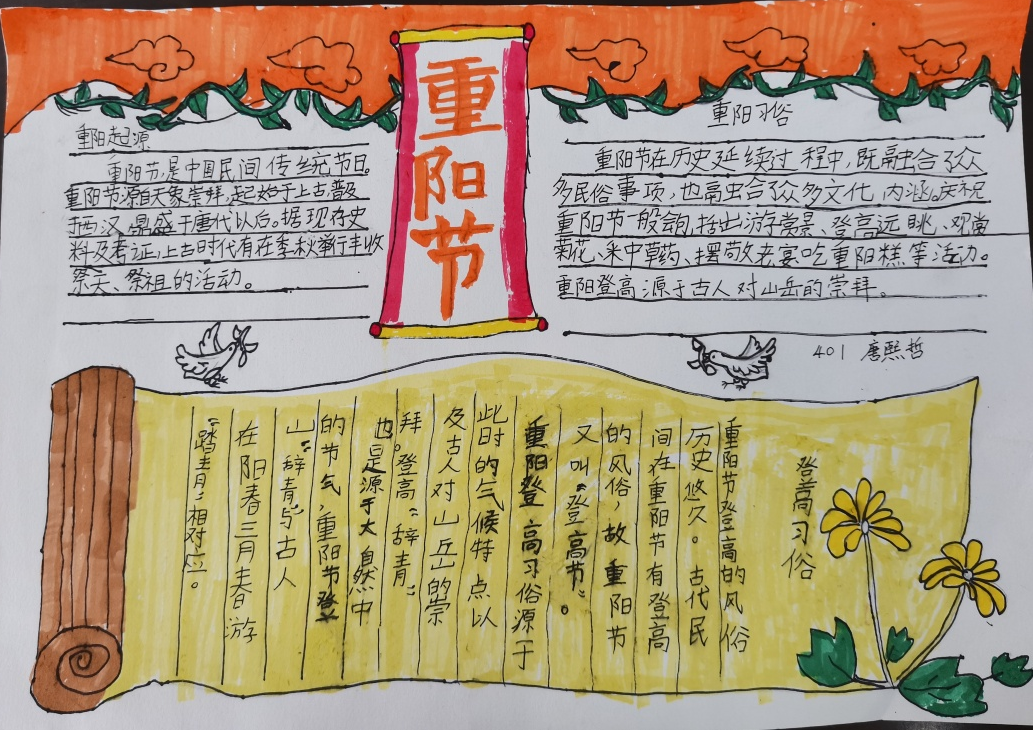 重阳节
重阳起源
重阳节,是中国民间传统节日。
重阳节源自天象崇拜,起始于上古,普及
于西汉,鼎盛于唐代以后。据现存史
料及考证,上古时代有在季秋举行丰收
祭天、祭祖的活动。
重阳习俗
重阳节在历史延续过程中,既融合了众
多民俗事项,也融合了众多文化内涵。庆祝
重阳节一般会包括出游赏景、登高远眺、观赏
菊花、采中草药、摆敬老宴吃重阳糕等活动。
重阳登高源于古人对山岳的崇拜。
401 唐熙哲
登高习俗
重阳节登高的风俗
历史悠久。古代民
间在重阳节有登高
的风俗,故重阳节
又叫“登高节”。
重阳登高习俗源于
此时的气候特点以
及古人对山岳的崇
拜。登高“辞青”
也是源于大自然中
的节气,重阳节登
山“辞青”与古人
在阳春三月春游
“踏青”相对应。